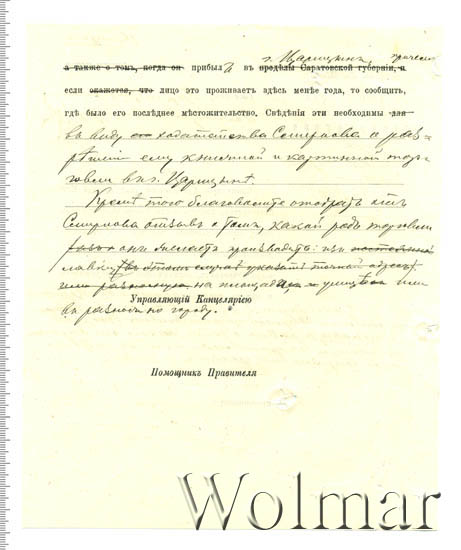 г. Царицынъ, причемъ
а также о томъ, когда онъ прибылъ въ предѣлы Саратовской губерніи, и
если окажется, что лицо это проживаетъ здѣсь менѣе года, то сообщить,
гдѣ было его послѣднее мѣстожительство. Свѣдѣнія эти необходимы для
въ виду ходатайства Смирнова о раз-
рѣшеніи ему книжной и картинной тор-
говли въ г. Царицынѣ.
Кромѣ того благоволите отобрать отъ
Смирнова отзывъ о томъ, какой родъ торговли
онъ желаетъ производить: изъ
лавки (въ этомъ случаѣ указать точный адресъ)
или на площадяхъ и улицахъ или
Управляющій Канцеляріею
въ разносъ по городу.
Помощникъ Правителя
Wolmar